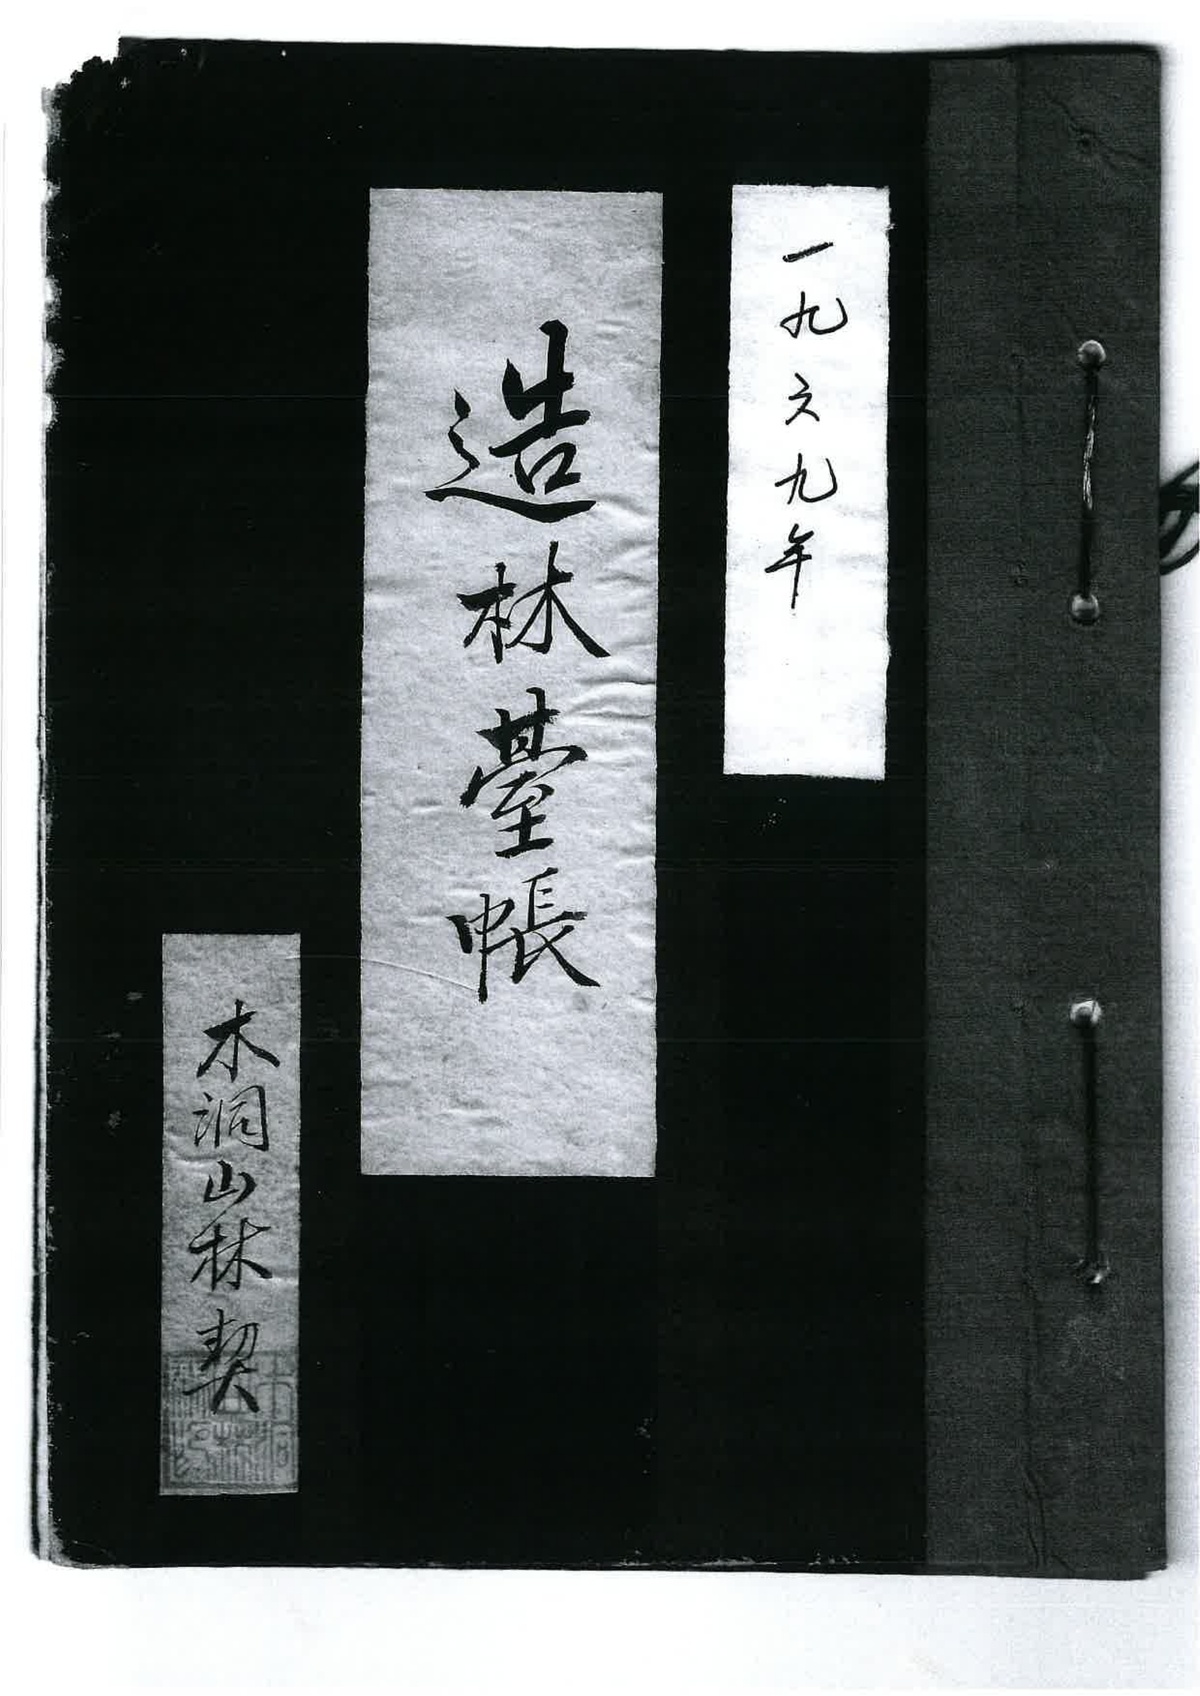 一九六九年
造林臺帳
木洞山林契